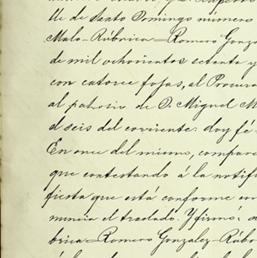 lle de Santo Domingo número
Malo-Rúbrica-Romero Gonza
de mil ochocientos setenta y
con catorce fojas, al Procura
al patrocinio de D. Miguel M
d seis del corriente: doy fé
En once del mismo, compare
que contestando á la notifi
fiesta que está conforme con
nuncia el traslado. Y firmó: d
brica-Romero Gonzalez-Rúb